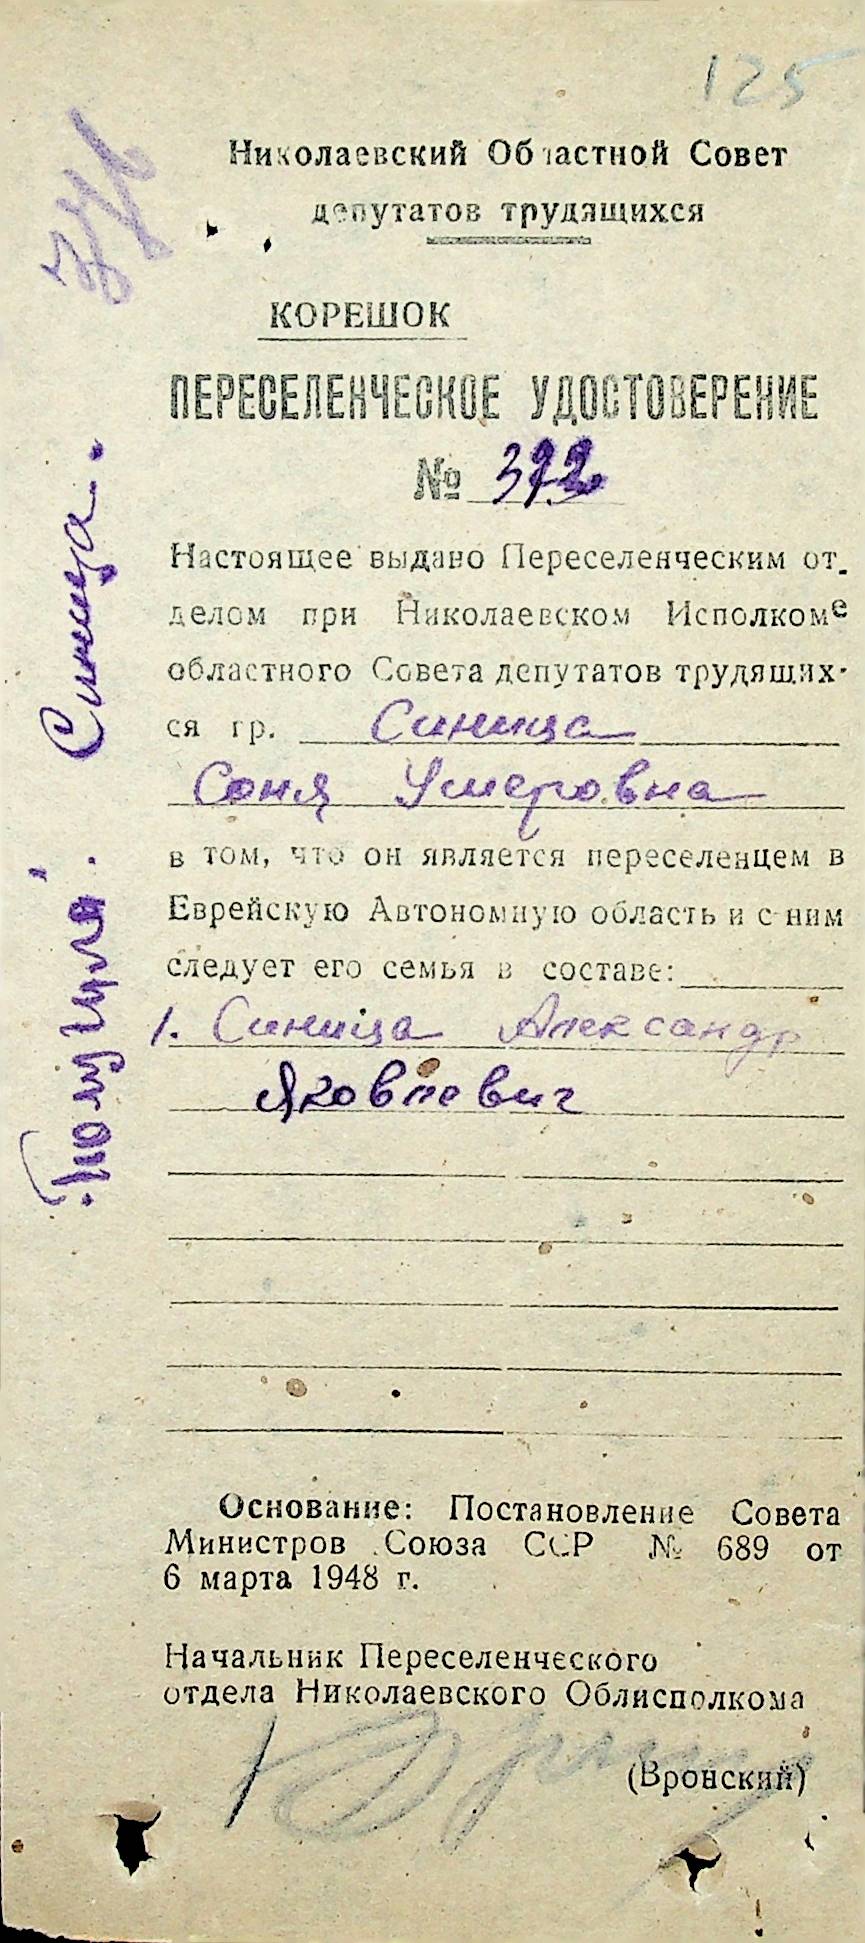 125
Николаевский Областной Совет
депутатов трудящихся
КОРЕШОК
ПЕРЕСЕЛЕНЧЕСКОЕ УДОСТОВЕРЕНИЕ
№ 372
Настоящее выдано Переселенческим от-
делом при Николаевском Исполкоме
областного Совета депутатов трудящих-
ся гр. Синица
Соня Умеровна
в том, что он является переселенцем в
Еврейскую Автономную область и с ним
следует его семья в составе:
1. Синица Александр
Яковлевич
Основание: Постановление Совета
Министров Союза ССР № 689 от
6 марта 1948 г.
Начальник Переселенческого
отдела Николаевского Облисполкома
(Вронский)
Получила. Синица.